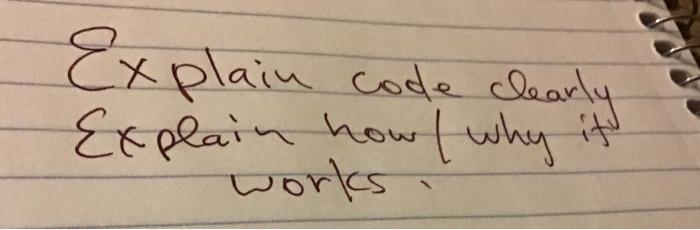 Explain code clearly
Explain how/why it
works.